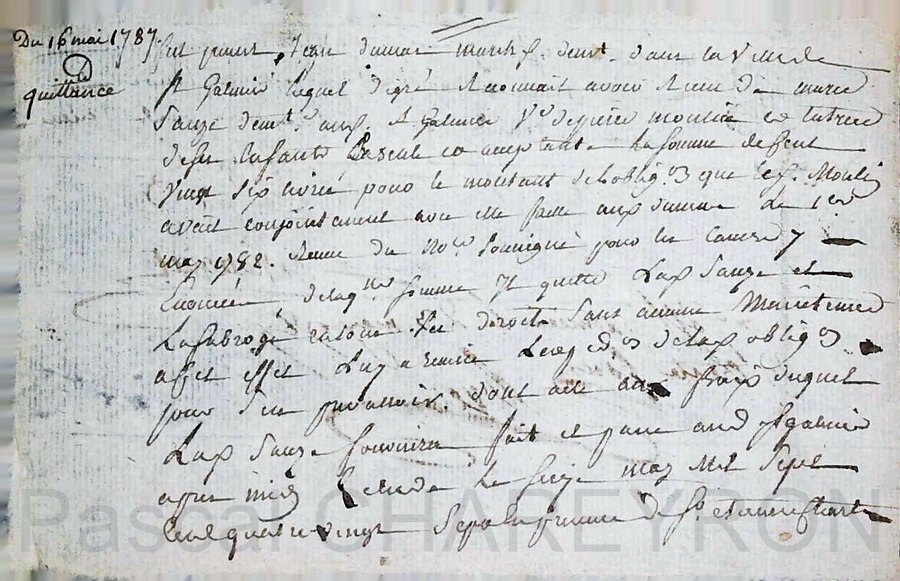 Du 16 mai 1787.
quittance
fut présent, Jean dumas march.d dem.t dans la Ville de
St Galmier lequel de gré a reconnait avoir reçu de marie
Sauze dem.t aud. St Galmier V.e de pierre moulin et tutrice
de ses Enfants présente et acceptante La somme de Cent
Vingt six livres pour le montant de l'oblig.on que led. Moulin
avait conjointement avec elle faite aud dumas Le 1er
may 1782. Reçue du No.re pour les causes y
Enoncées de laq.lle somme Il quitte Lad. Sauze et
La Subroge en tous ses droits Sans aucune Maintenue
a cet effet Luy a remis L'exp.ed.on de lad. oblig.on
pour s'en prévaloir. dont acte aux frais duquel
Lad. Sauze fournira fait et passé aud St galmier
apres midy Le seize may Mil Sept
Cent quatre vingt Sept en présence de Sr
Pascal CHAREYRON